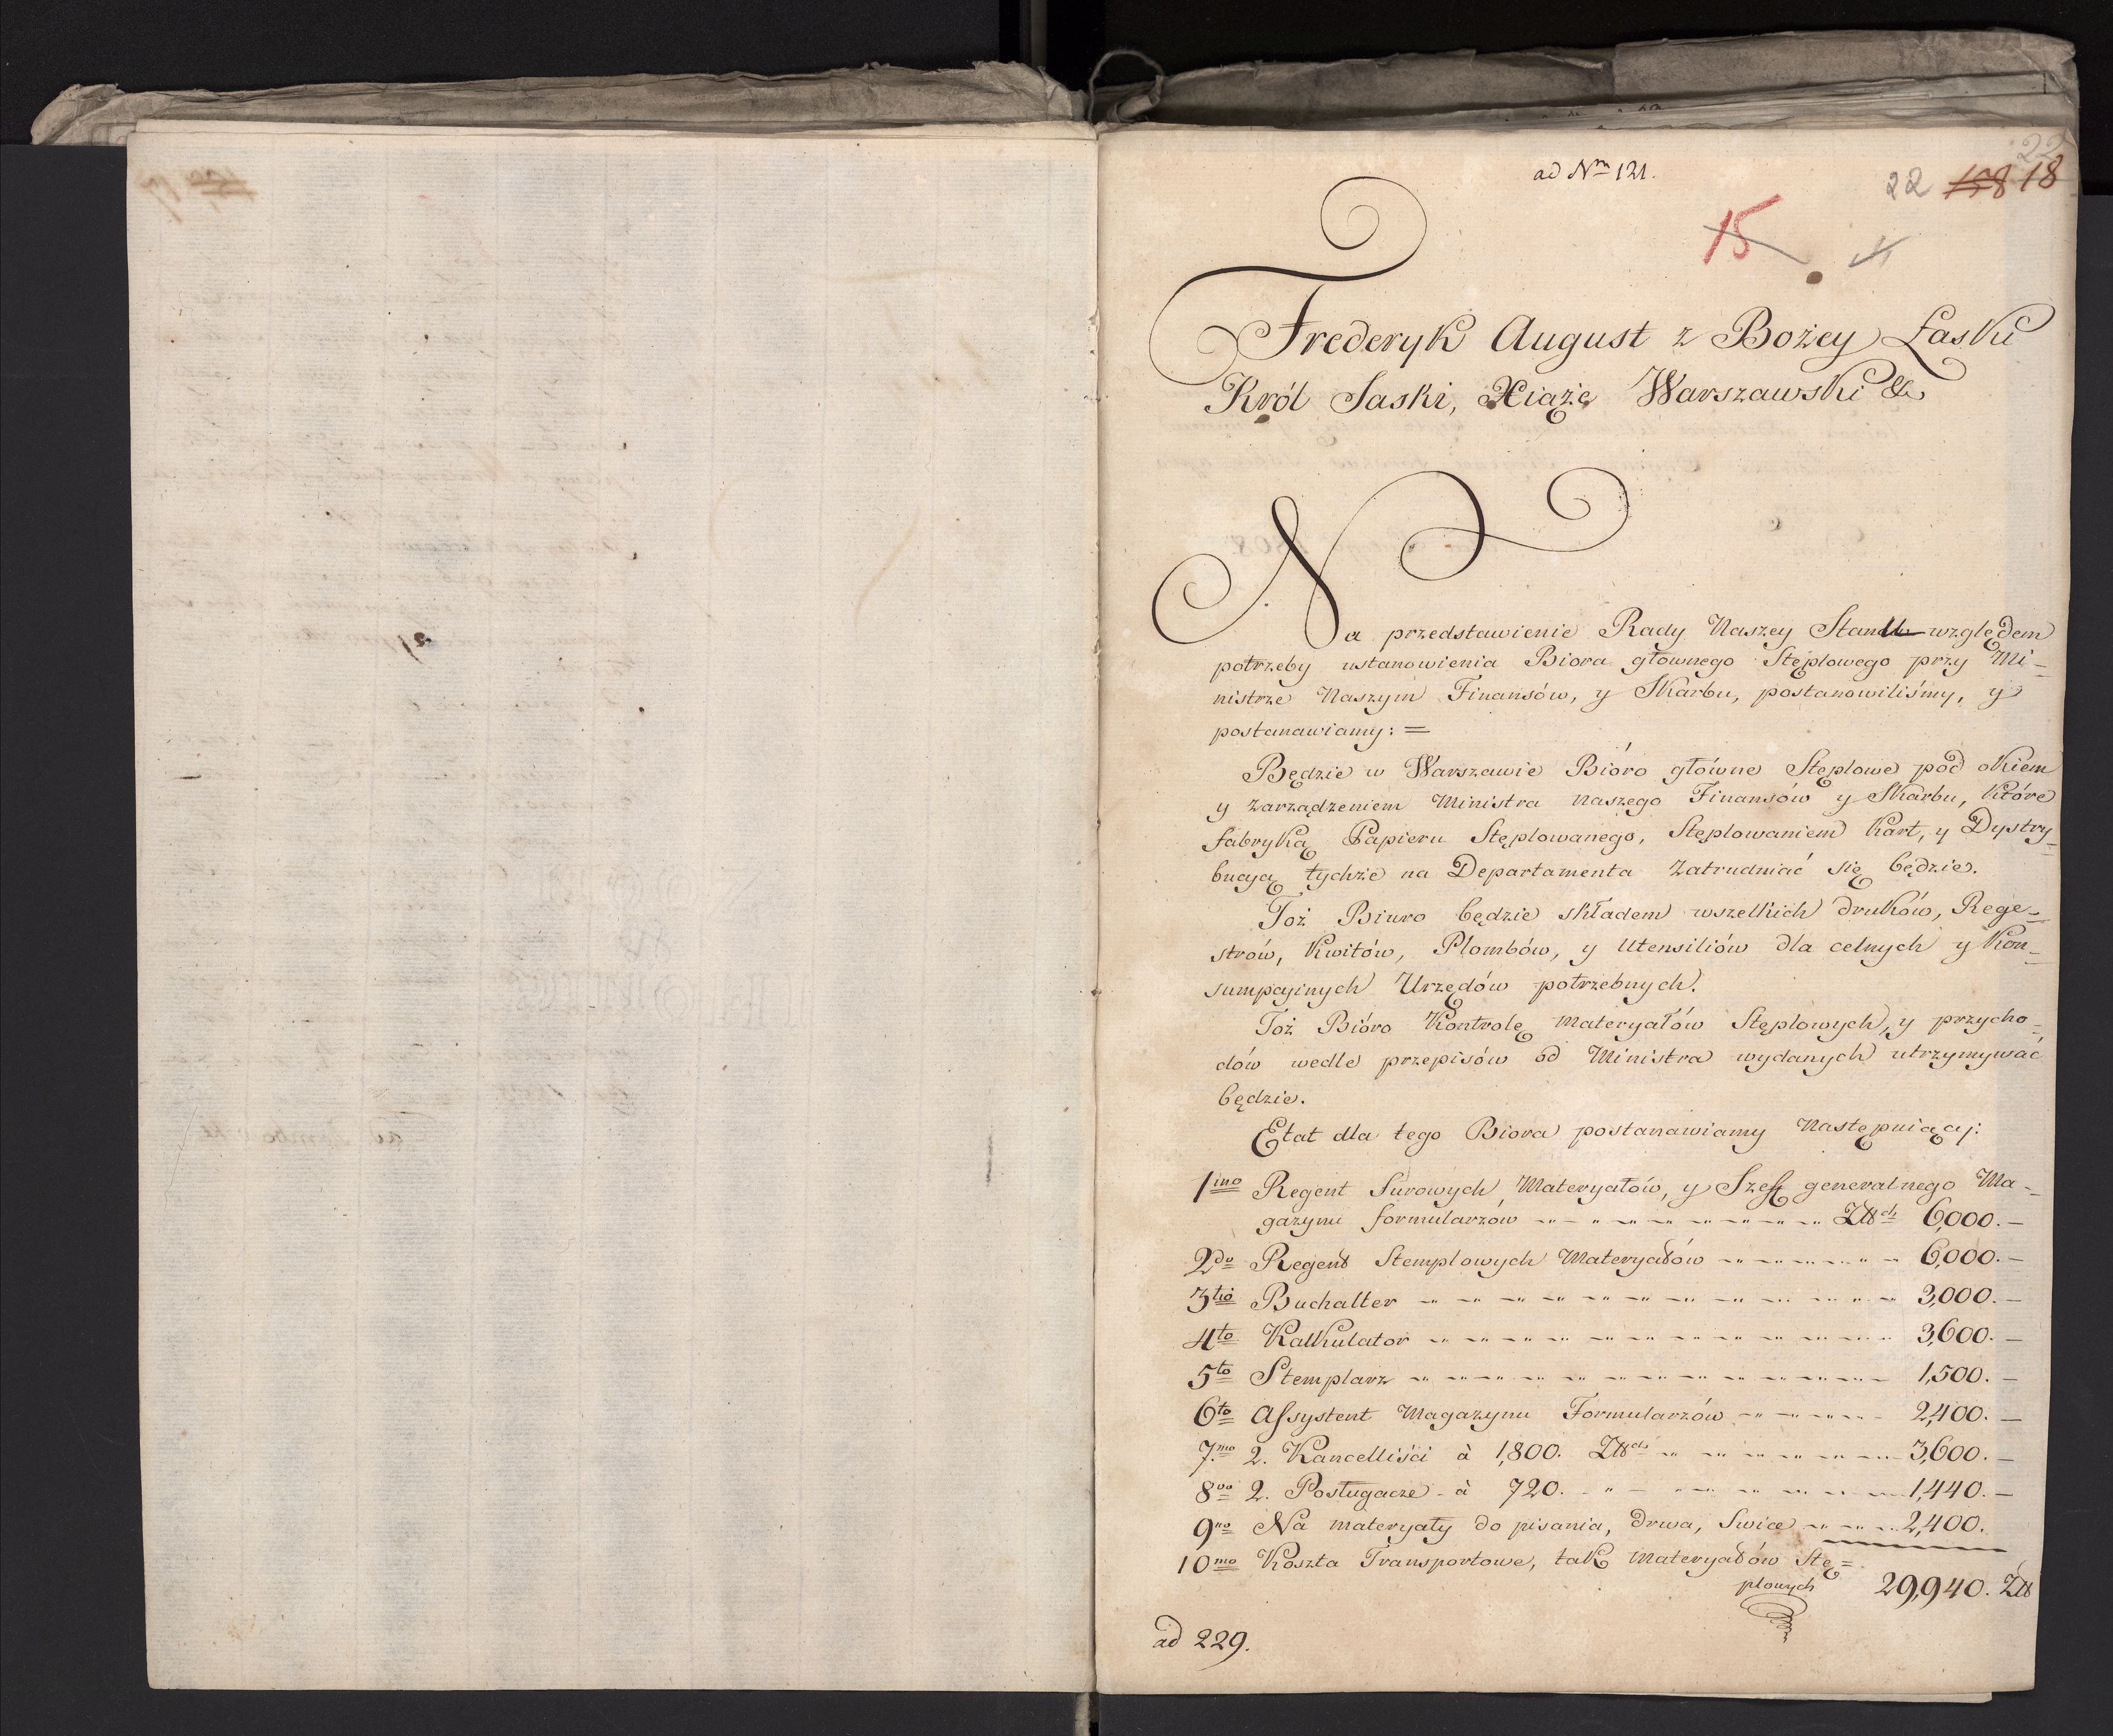 ad Nm 121.
22
22 158 18
15
Frederyk August z Bożey Łaski
Król Saski, Xiąże Warszawski &
Na przedstawienie Rady Naszey Stanu względem
potrzeby ustanowienia Biora głownego Stęplowego przy Mi=
nistrze Naszym Finansów, y Skarbu, postanowiliśmy, y
postanawiamy: =
Będzie w Warszawie Bióro główne Stęplowe pod okiem
y zarządzeniem Ministra naszego Finansów y Skarbu, które
fabryką Papieru Stęplowanego, Stęplowaniem Kart, y Dystry=
bucyą tychże na Departamenta zatrudniać się będzie.
Toż Biuro będzie składem wszelkich druków, Rege=
strów, Kwitów, Plombów, y Utensiliów dla celnych y Kon=
sumpcyinych Urzędów potrzebnych.
Toż Bióro Kontrolę materyałów Stęplowych, y przycho=
dów wedle przepisów od Ministra wydanych utrzymywać
będzie.
Etat dla tego Biora postanawiamy Następuiący:
1mo Regent Surowych Materyałów, y Szeff generalnego Ma=
gazynu formularzów Złłch 6,000.—
2do Regent Stemplowych Materyałów 6,000.—
3tio Buchalter 3,000.—
4to Kalkulator 3,600.—
5to Stemplarz 1,500.—
6to Assystent Magazynu Formularzów 2,400.—
7mo 2. Kancelliści à 1,800. Złłch 3,600.—
8vo 2. Posługacze à 720. 1,440.—
9no Na materyały do pisania, drwa, Swice 2,400.
10mo Koszta Transportowe, tak Materyałów Stę=
plowych 29,940. Złł
ad 229.